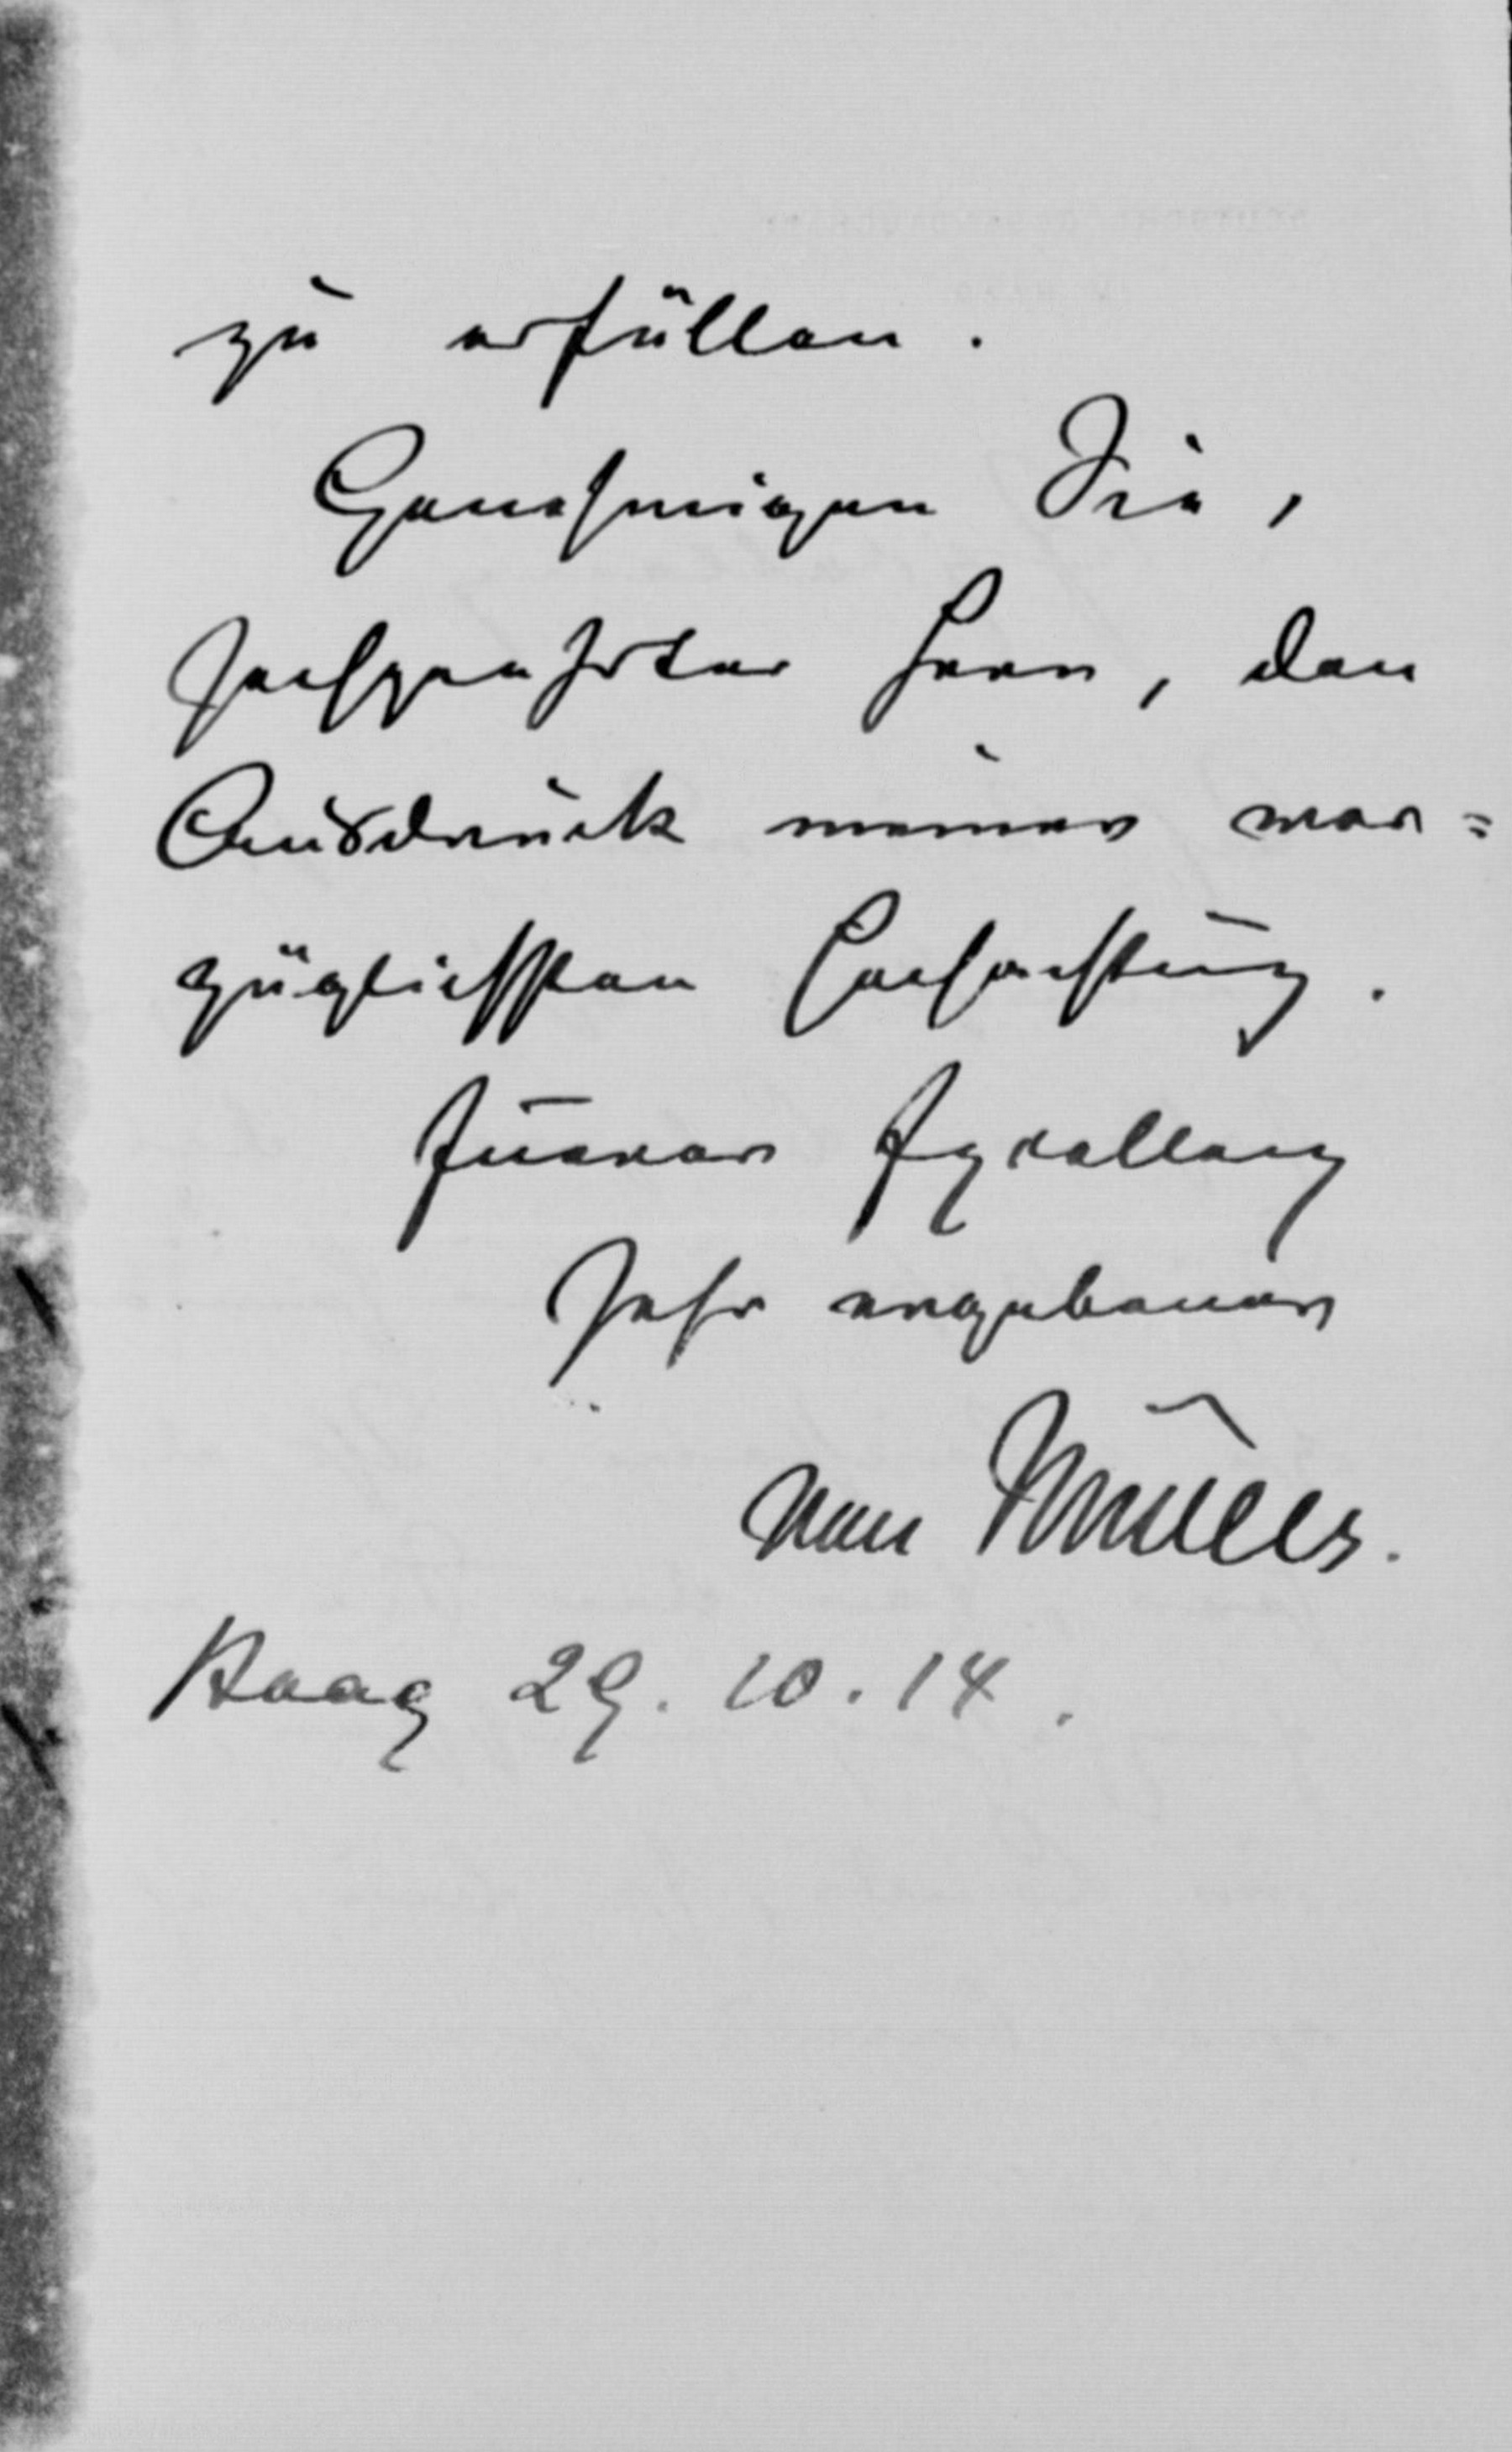 zu erfüllen.
Genehmigen Sie,
hochgeehrter Herr, den
Ausdruck meiner vor=
züglichsten Hochachtung.
Euerer Exzellenz
sehr ergebener
von Müller.
Haag 29. 10. 14.